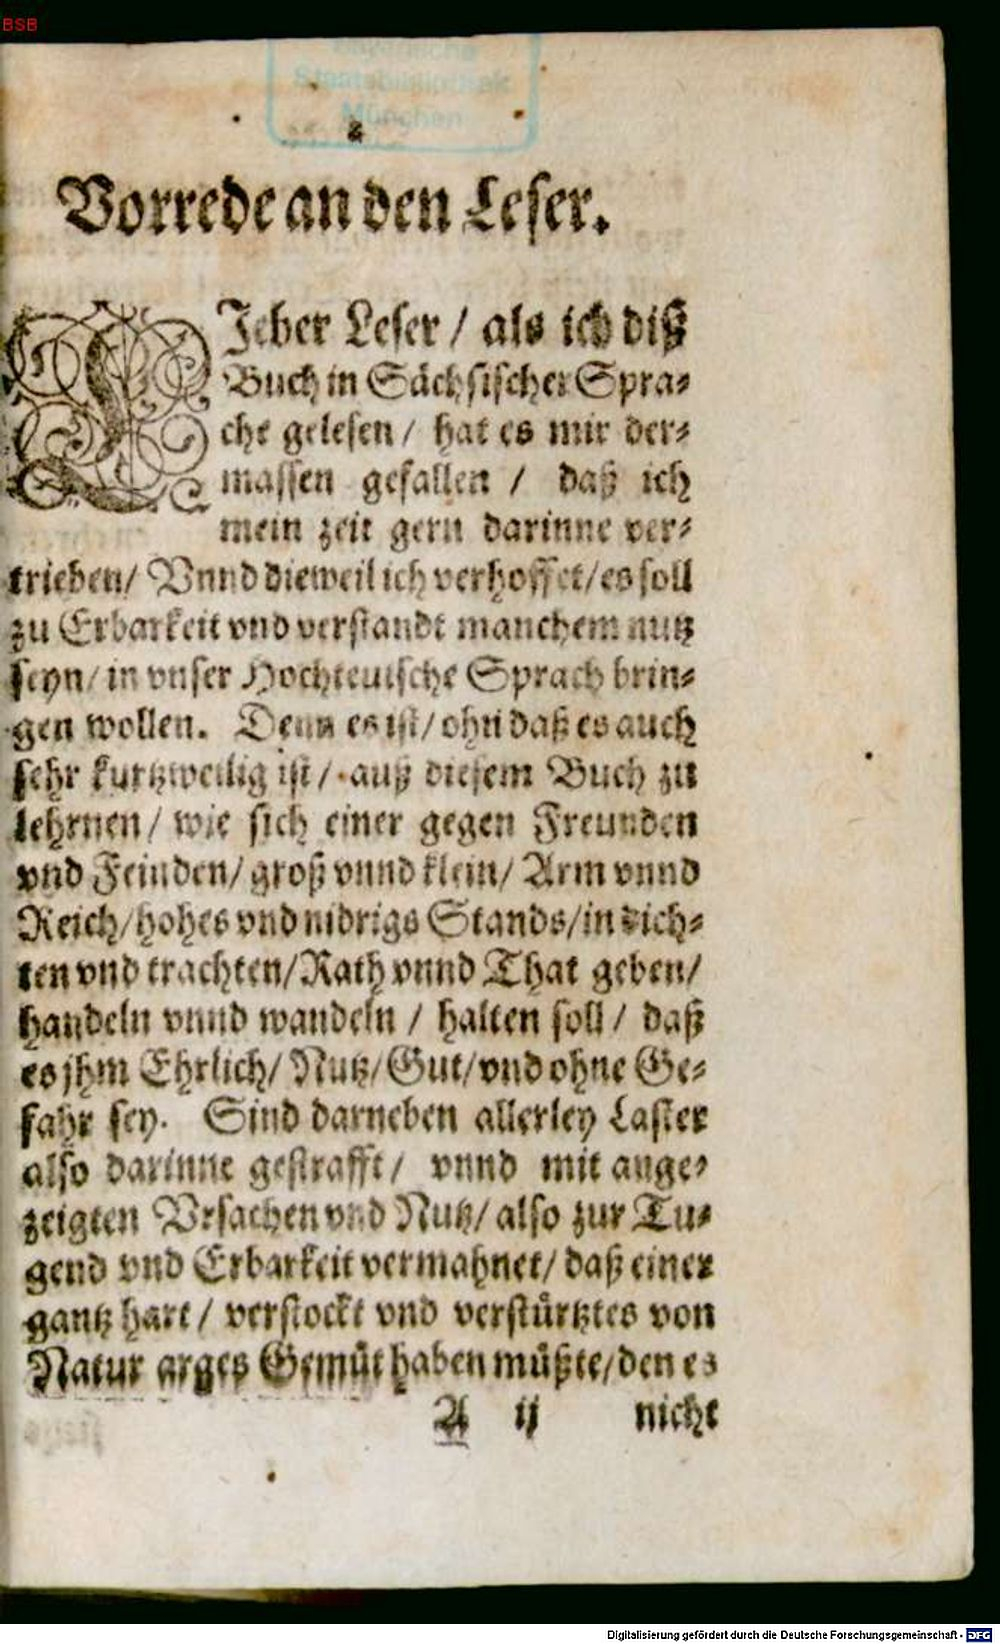 BSB
Bayerische
Staatsbibliothek
München
2
Vorrede an den Leser.
LJeber Leser / als ich diß
Buch in Sächsischer Spra-
che gelesen / hat es mir der-
massen gefallen / daß ich
mein zeit gern darinne ver-
trieben / Vnnd dieweil ich verhoffet / es soll
zu Erbarkeit vnd verstandt manchem nutz
seyn / in vnser Hochteutsche Sprach brin-
gen wollen. Denn es ist / ohn daß es auch
sehr kurtzweilig ist / auß diesem Buch zu
lehrnen / wie sich einer gegen Freunden
vnd Feinden / groß vnnd klein / Arm vnnd
Reich / hohes vnd nidrigs Stands / in dich-
ten vnd trachten / Rath vnnd That geben /
handeln vnnd wandeln / halten soll / daß
es jhm Ehrlich / Nutz / Gut / vnd ohne Ge-
fahr sey. Sind darneben allerley Laster
also darinne gestrafft / vnnd mit ange-
zeigten Vrsachen vnd Nutz / also zur Tu-
gend vnd Erbarkeit vermahnet / daß einer
gantz hart / verstockt vnd verstürtztes von
Natur arges Gemüt haben müßte / den es
A ij nicht
Digitalisierung gefördert durch die Deutsche Forschungsgemeinschaft - DFG